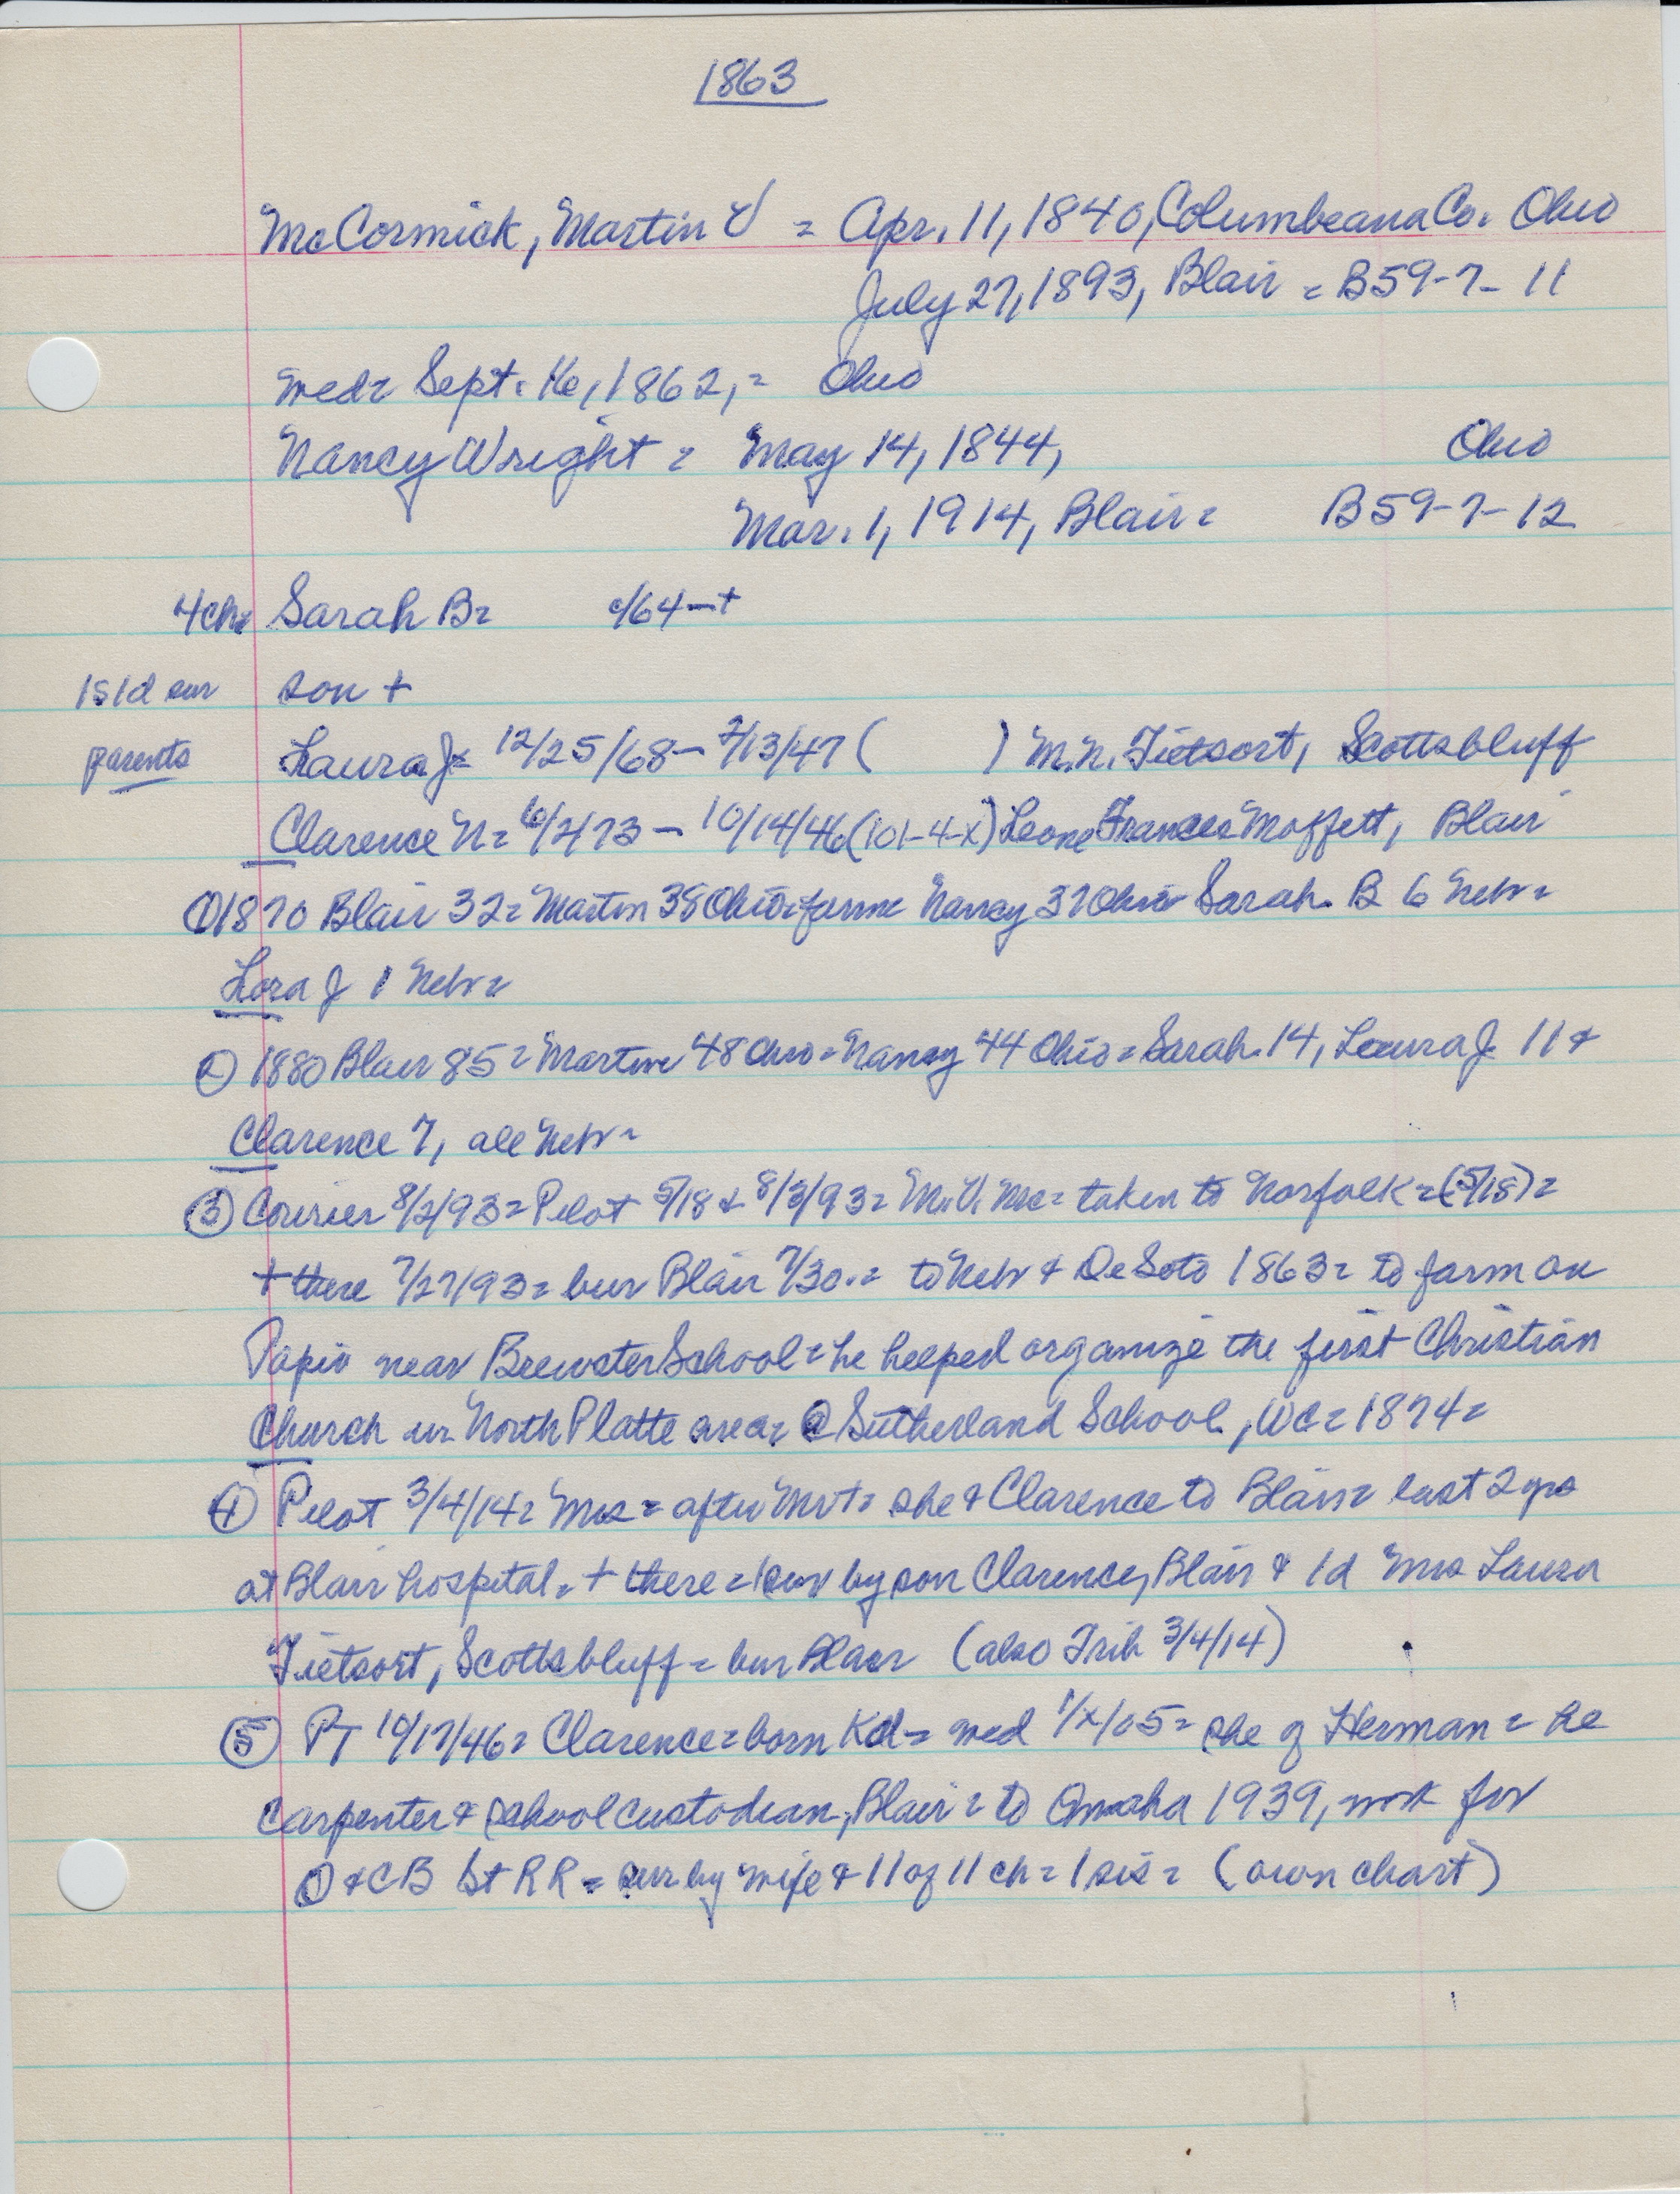 1863
McCormick, Martin V = Apr. 11, 1840, Columbeana Co. Ohio
July 27, 1893, Blair = B59-7-11
wed = Sept. 16, 1862, = Ohio
Nancy Wright = May 14, 1844, Ohio
Mar. 1, 1914, Blair = B59-7-12
4ch = Sarah B = c/64-+
1s 1d sur son +
parents Laura J = 12/25/68 - 2/13/47 ( ) M.N. Tietsort, Scottsbluff
Clarence N = 6/2/73 - 10/14/46 (101-4-X) Leone Frances Moffett, Blair
① 1870 Blair 32 = Martin 38 Ohio = farme Nancy 37 Ohio = Sarah B 6 Nebr =
Lora J 1 Nebr =
② 1880 Blair 85 = Martin 48 Ohio = Nancy 44 Ohio = Sarah 14, Laura J 11 &
Clarence 7, all Nebr =
③ Courier 8/2/93 = Pilot 5/18 & 8/3/93 = M.V. Mc = taken to Norfolk = (5/18) =
+ there 7/27/93 = bur Blair 7/30. = to Nebr & DeSoto 1863 = to farm on
Papio near Brewster School = he helped organize the first Christian
Church in North Platte area = @ Sutherland School, WC = 1874 =
④ Pilot 3/4/14 = Mrs = after Mr + = she & Clarence to Blair = last 2 yrs
at Blair hospital = + there = sur by son Clarence, Blair & 1d Mrs Laura
Tietsort, Scottsbluff = bur Blair (also Trib 3/4/14)
⑤ PT 10/17/46 = Clarence = born Kd = wed 1/X/05 = she of Herman = he
carpenter & school custodian, Blair = to Omaha 1939, work for
O & CB St RR = sur by wife & 11 of 11 ch = 1 sis = (own chart)